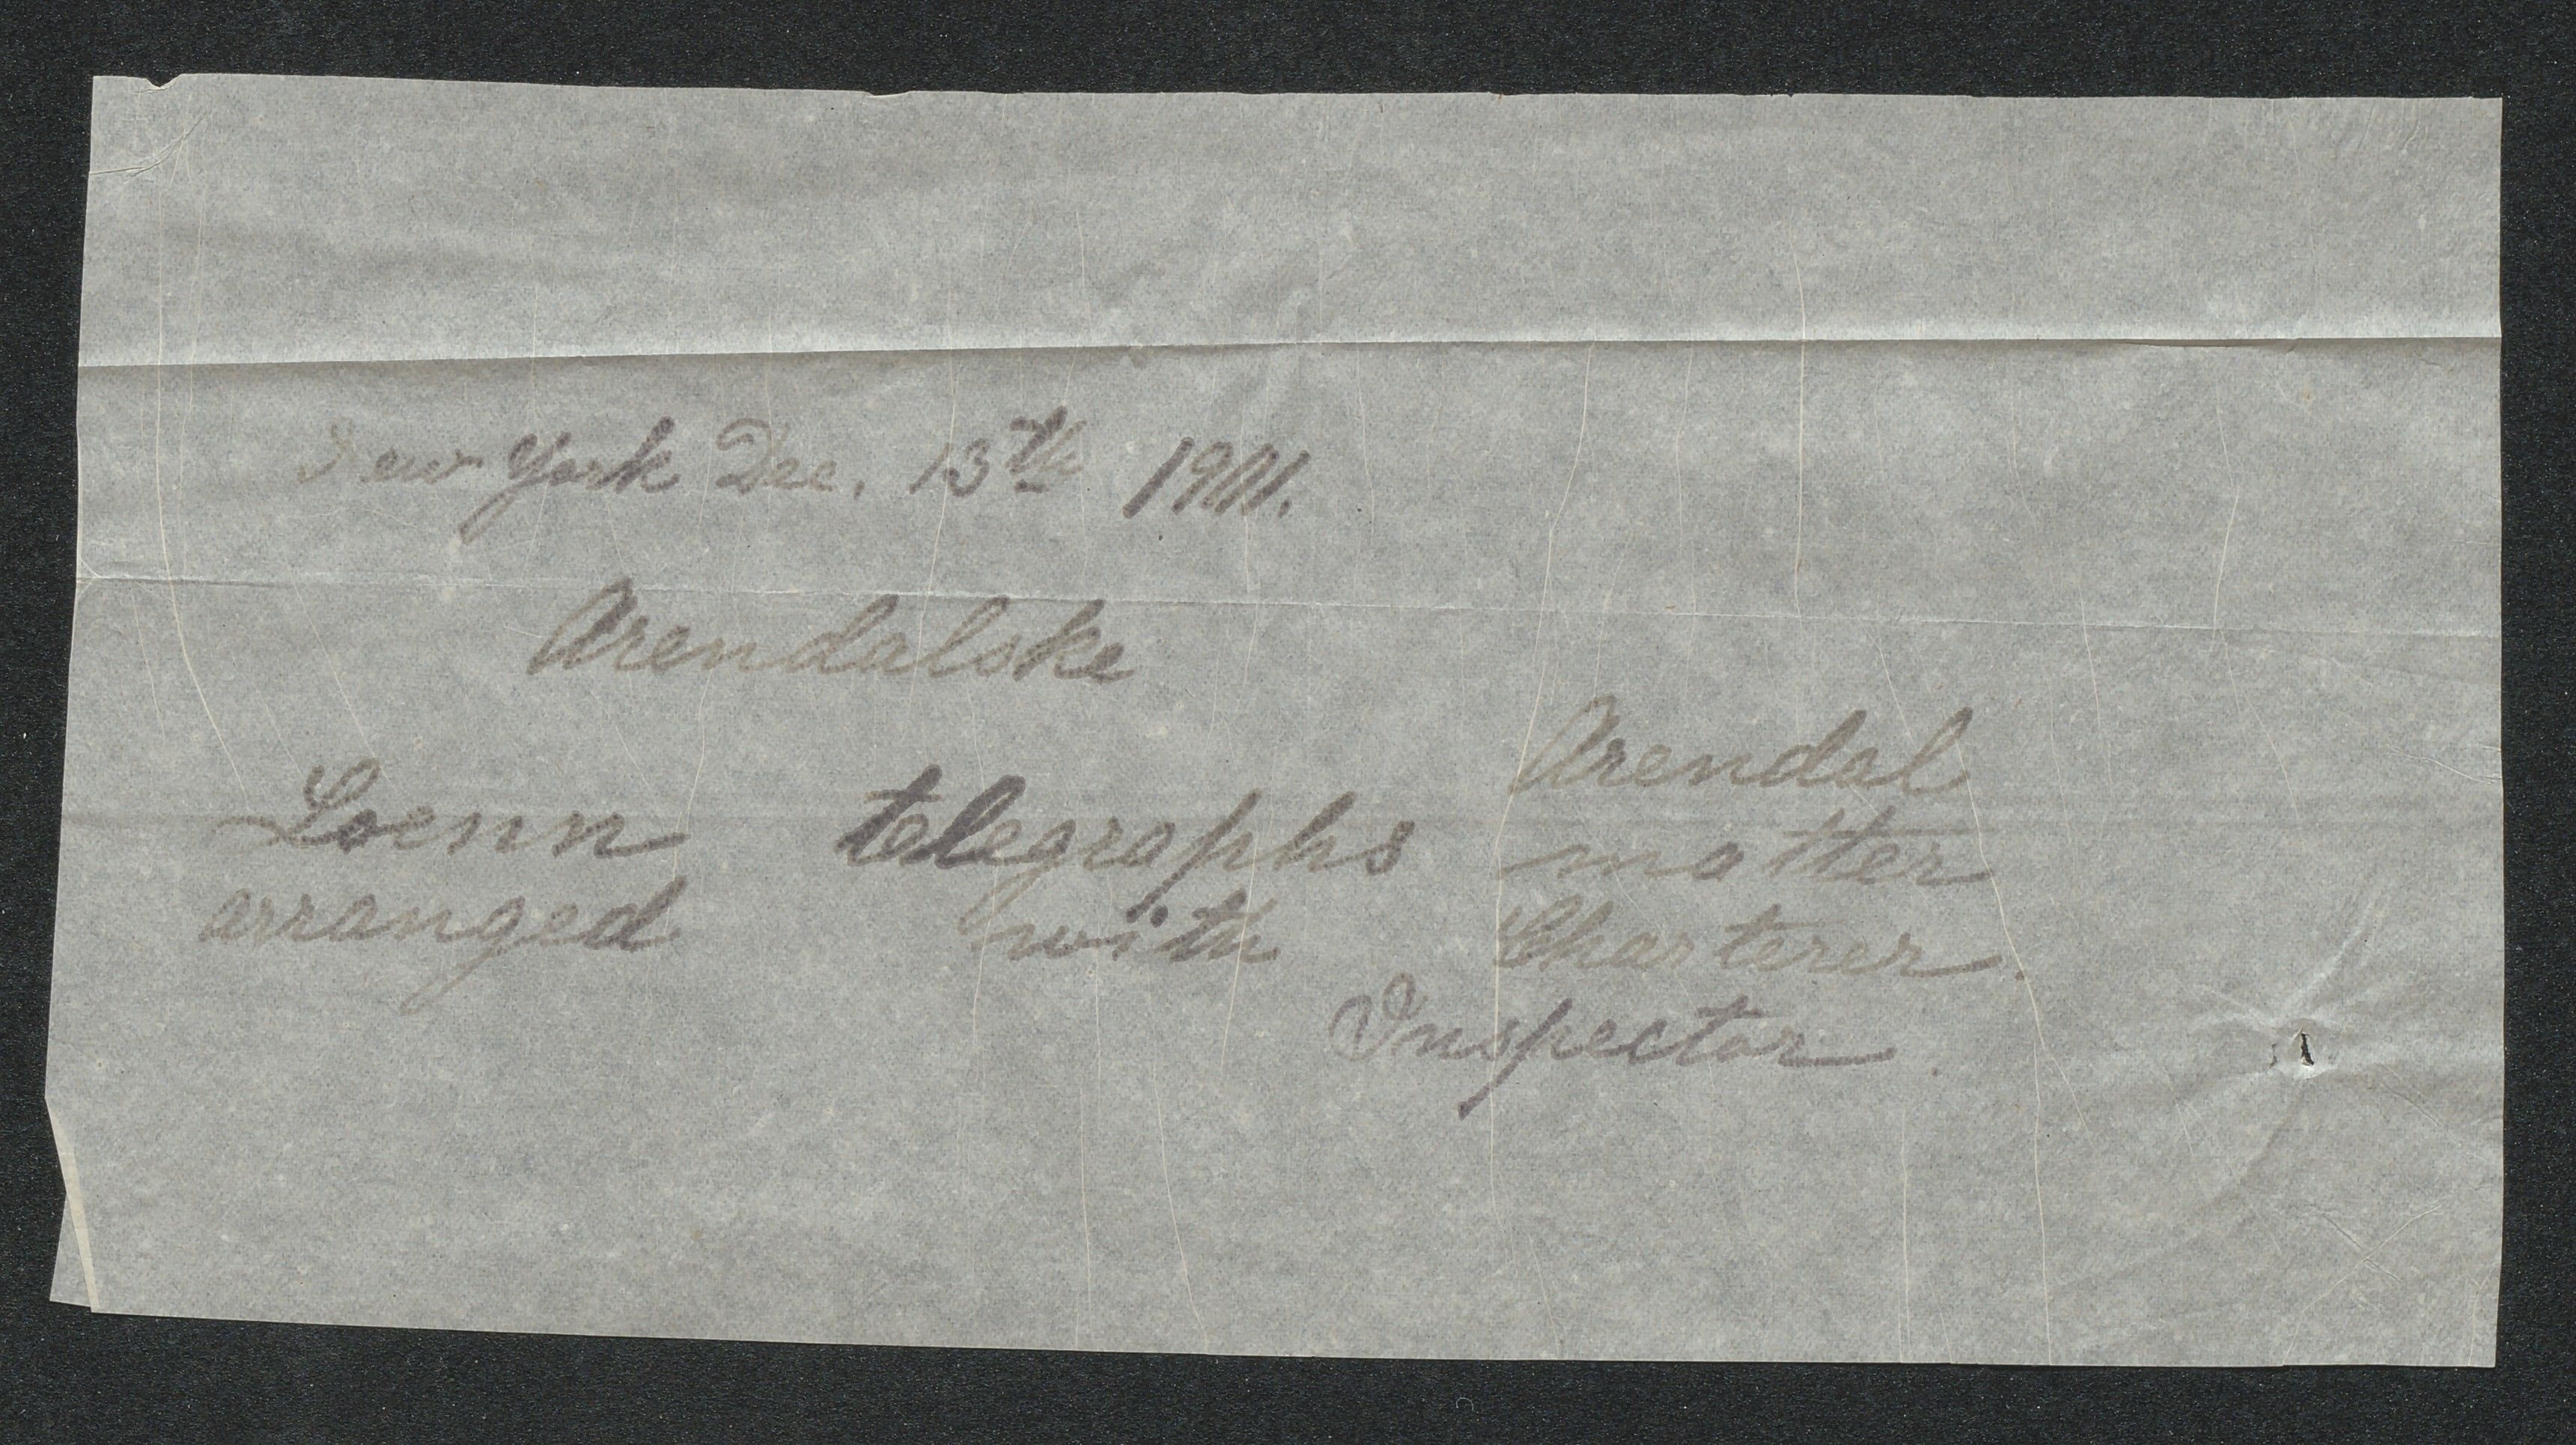 New York Dec. 13th 1901.
Arendalske
Arendal
Loenn telegraphs matter
arranged with Charterer.
Inspector.